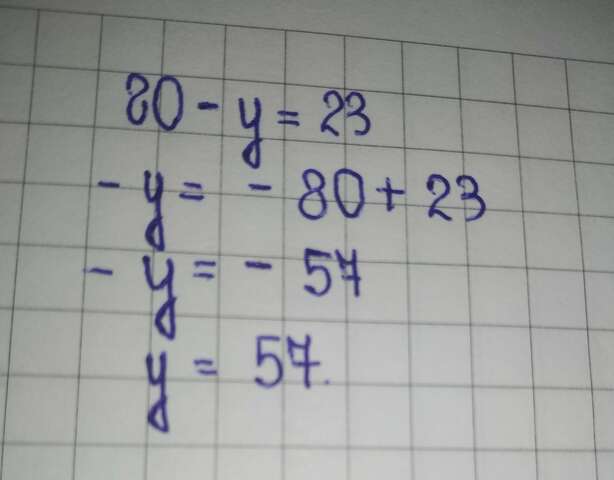 80 - y = 23
- y = - 80 + 23
- y = - 57
y = 57.